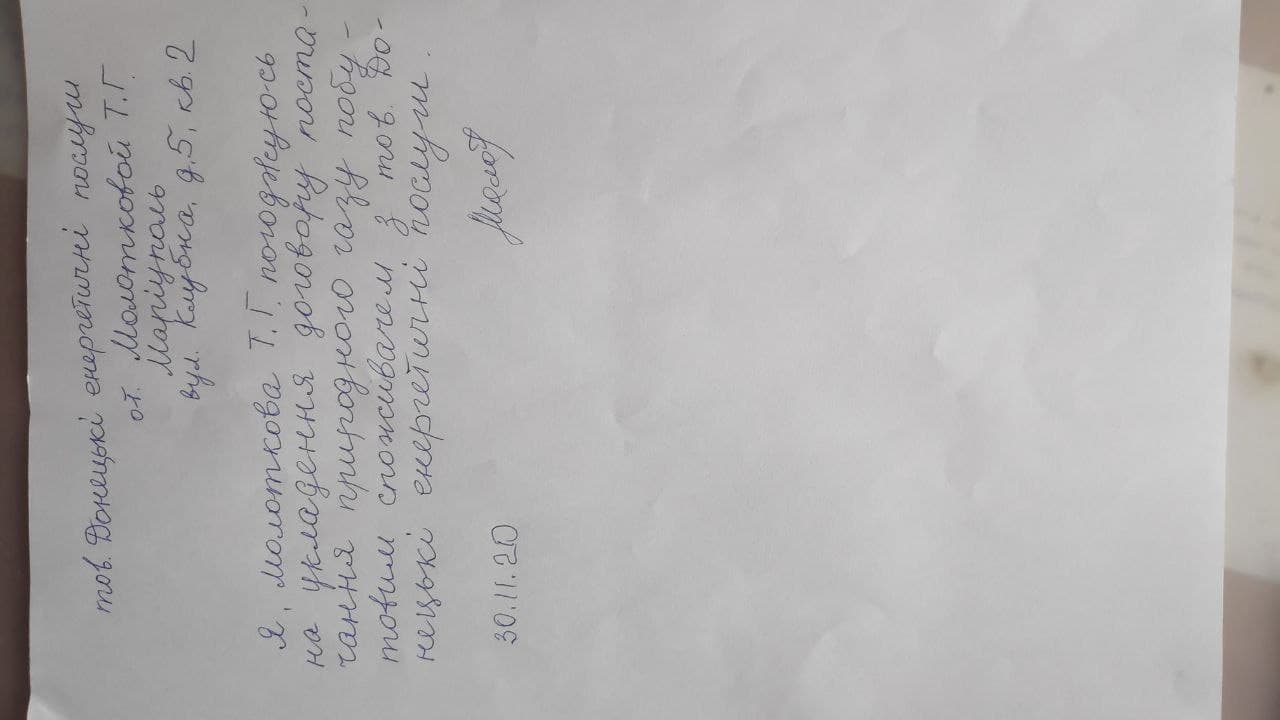 тов. Донецькі енергетичні послуги
от. Молотковой Т.Г.
Маріуполь
вул. Клубна, д.5, кв.2
Я, Молоткова Т.Г. погоджуюсь
на укладення договору поста-
чання природного газу побу-
товим споживачем з тов. До-
нецькі енергетичні послуги.
30.11.20 Молот